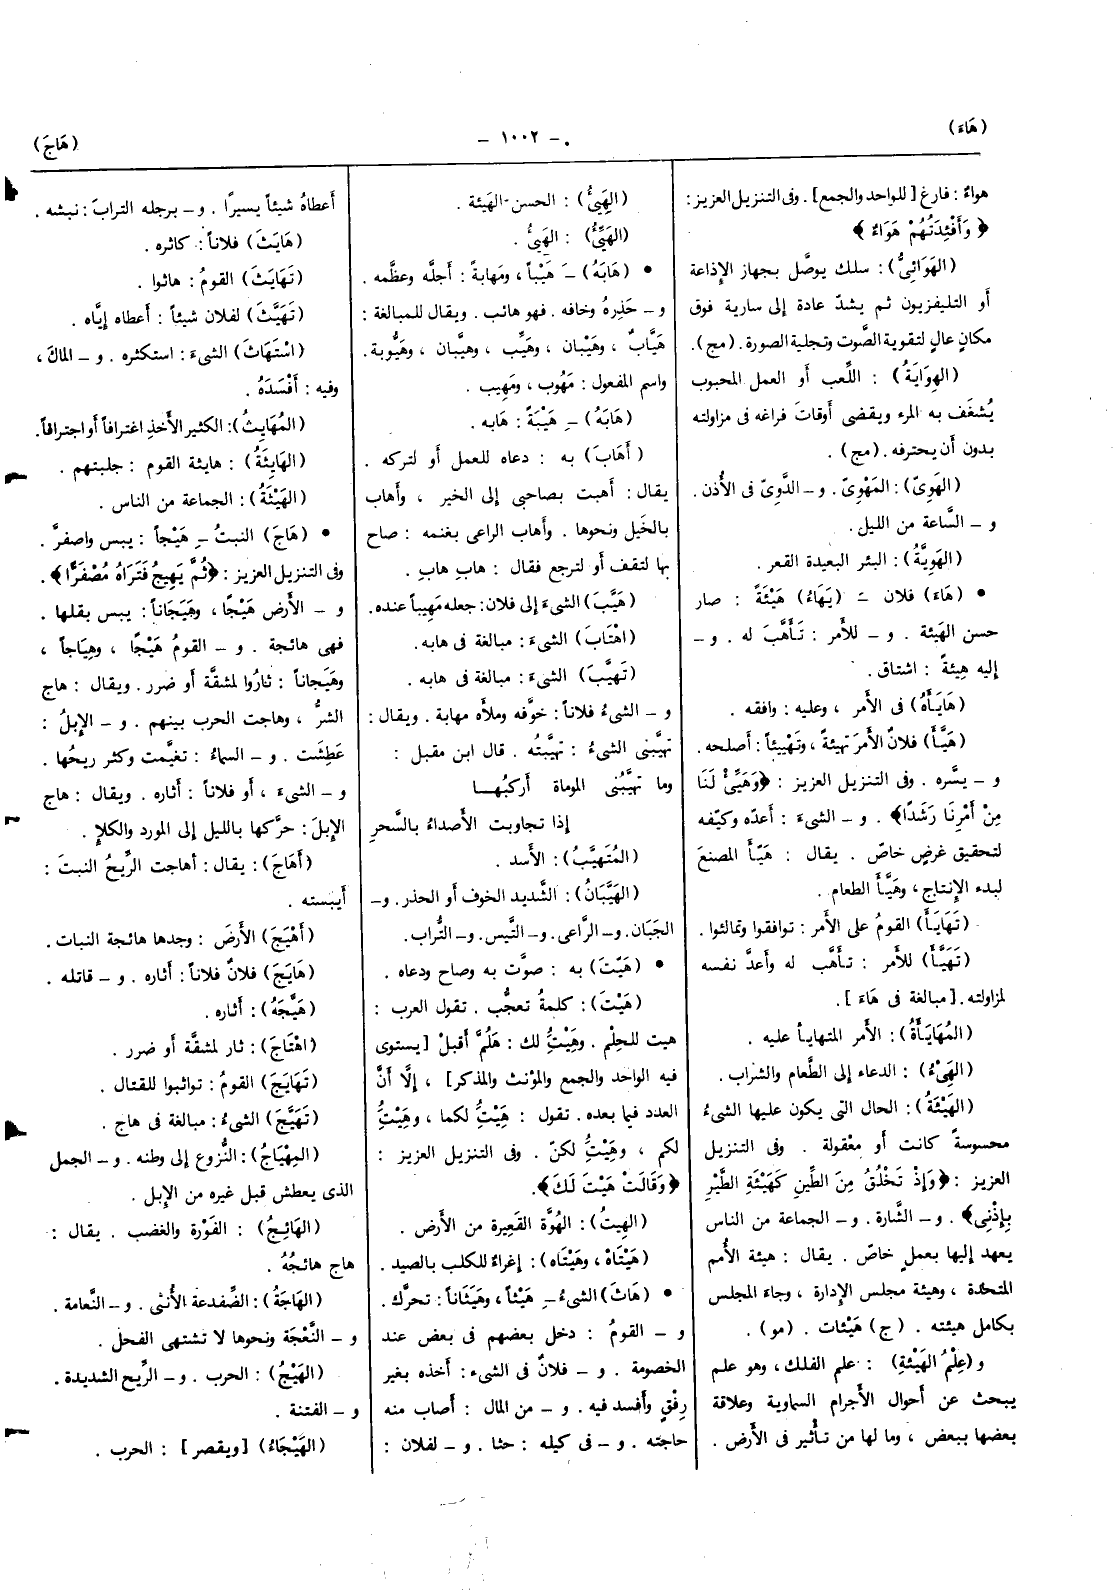 (هَاءَ)
— ١٠٠٢ —
(هَاجَ)
هواءٌ : فارغ [للواحد والجمع] . وفى التنزيل العزيز :
﴿ وَأَفْئِدَتُهُمْ هَوَاءٌ ﴾
(الهَوَائِىُّ) : سلك يوصَّل بجهاز الإِذاعة
أَو التليفزيون ثم يشدّ عادة إلى سارية فوق
مكانٍ عالٍ لتقوية الصَّوت وتجلية الصورة . (مج) .
(الهِوَايَةُ) : اللَّعب أَو العمل المحبوب
يُشغَف به المرء ويقضى أَوقاتَ فراغه فى مزاولته
بدون أَن يحترفه . (مج) .
(الهَوِىّ) : المَهْوِىّ . و – الدَّوِىّ فى الأُذن .
و – السَّاعة من الليل .
(الهَوِيَّةُ) : البئر البعيدة القعر .
• (هَاءَ) فلان ـَ (يَهَاءُ) هَيْئَةً : صار
حسن الهَيئة . و – للأَمر : تَأَهَّبَ له . و –
إليه هِيئةً : اشتاق .
(هَايَأَهُ) فى الأَمر ، وعليه : وافقه .
(هَيَّأَ) فلانٌ الأَمرَ تهيئةً ، وتَهْيِيئاً : أَصلحه .
و – يسَّره . وفى التنزيل العزيز : ﴿وَهَيِّئْ لَنَا
مِنْ أَمْرِنَا رَشَدًا﴾ . و – الشىءَ : أَعدّه وكيّفه
لتحقيق غرضٍ خاصّ . يقال : هَيّأَ المصنعَ
لبدء الإِنتاج ، وهَيَّأَ الطعام .
(تَهَايَأَ) القومُ على الأَمر : توافقوا وتمالئوا .
(تَهَيَّأَ) للأَمر : تأَهَّب له وأَعدَّ نفسه
لمزاولته . [مبالغة فى هَاءَ] .
(المُهَايَأَةُ) : الأَمر المتهايأ عليه .
(الهَىْءُ) : الدعاء إلى الطَّعام والشراب .
(الهَيْئَةُ) : الحال التى يكون عليها الشىءُ
محسوسةً كانت أَو معْقولة . وفى التنزيل
العزيز : ﴿وَإِذْ تَخْلُقُ مِنَ الطِّينِ كَهَيْئَةِ الطَّيْرِ
بِإِذْنِى﴾ . و – الشَّارة . و – الجماعة من الناس
يعهد إليها بعملٍ خاصّ . يقال : هيئة الأُمم
المتحدة ، وهيئة مجلس الإِدارة ، وجاءَ المجلس
بكامل هيئته . (ج) هَيْئات . (مو) .
و (عِلْمُ الهَيْئَةِ) : علم الفلك ، وهو علم
يبحث عن أَحوال الأَجرام السماوية وعلاقة
بعضها ببعض ، وما لها من تأْثير فى الأَرض .
(الهَيِئُ) : الحسن الهَيئة .
(الهَيِّئُ) : الهَيِئُ .
• (هَابَهُ) ـَ هَيْباً ، ومَهابة : أَجلَّه وعظَّمه .
و – حَذِرهُ وخافه . فهو هائب . ويقال للمبالغة :
هَيَّابٌ ، وهَيْبان ، وهَيِّب ، وهيَّبان ، وهَيُّوبة .
واسم المفعول : مَهُوب ، ومَهِيب .
(هَابَهُ) ـِ هَيْبَةً : هَابه .
(أَهَابَ) به : دعاه للعمل أَو لتركه .
يقال : أَهبت بصاحبى إلى الخير ، وأَهاب
بالخَيل ونحوها . وأَهاب الراعى بغنمه : صاح
بها لتقف أَو لترجع فقال : هابِ هابِ .
(هَيَّبَ) الشىءَ إلى فلان : جعله مَهِيباً عنده .
(اهْتَابَ) الشىءَ : مبالغة فى هابه .
(تَهَيَّبَ) الشىءَ : مبالغة فى هابه .
و – الشىءُ فلاناً : خوَّفه وملأَه مهابة . ويقال :
تهيَّبنى الشىءُ : تهيَّبتُه . قال ابن مقبل :
وما تهيَّبُنى الموماة أَركبُهـــا
إذا تجاوبت الأَصداءُ بالسَّحرِ
(المُتَهَيِّبُ) : الأَسد .
(الهَيَّبَانُ) : الشَّديد الخوف أَو الحذر . و –
الجَبَان . و – الرَّاعى . و – التَّيس . و – التُّراب .
• (هَيَّتَ) به : صوَّت به وصاح ودعاه .
(هَيْتَ) : كلمةُ تعجُّب . تقول العرب :
هيت للحِلْم . وهَيْتَُِ لك : هَلُمَّ أَقبلْ [يستوى
فيه الواحد والجمع والمؤنث والمذكر] ، إلَّا أَنَّ
العدد فيما بعده . تقول : هَيْتَُِ لكما ، وهَيْتَُِ
لكم ، وهَيْتَُِ لكنّ . وفى التنزيل العزيز :
﴿وَقَالَتْ هَيْتَ لَكَ﴾ .
(الهِيتُ) : الهُوَّة القَعِيرة من الأَرض .
(هَيْتَاهْ ، وهَيْتَاه) : إغراءٌ للكلب بالصيد .
• (هَاثَ) الشىءُ ـِ هَيْثاً ، وهَيَثَاناً : تحرَّك .
و – القومُ : دخل بعضهم فى بعض عند
الخصومة . و – فلانٌ فى الشىءِ : أخذه بغير
رِفْقٍ وأَفسد فيه . و – من المال : أَصاب منه
حاجته . و – فى كيله : حثا . و – لفلان :
أَعطاهُ شيئاً يسيرًا . و – برجله الترابَ : نبشه .
(هَايَثَ) فلاناً : كاثره .
(تَهَايَثَ) القومُ : هاثوا .
(تَهَيَّثَ) لفلان شيئاً : أَعطاه إيَّاه .
(اسْتَهَاثَ) الشىءَ : استكثره . و – المالَ ،
وفيه : أَفْسَدَهُ .
(المُهَايِثُ) : الكثير الأَخذِ اغترافاً أَو اجترافاً .
(الهَايِثَةُ) : هايثة القوم : جلبتهم .
(الهَيْثَةُ) : الجماعة من الناس .
• (هَاجَ) النبتُ ـِ هَيْجاً : يبس واصفرَّ .
وفى التنزيل العزيز : ﴿ثُمَّ يَهِيجُ فَتَرَاهُ مُصْفَرًّا﴾ .
و – الأَرض هَيْجًا ، وهَيَجَاناً : يبس بقلها .
فهى هائجة . و – القومُ هَيْجًا ، وهِيَاجاً ،
وهَيَجاناً : ثارُوا لمشقَّة أَو ضرر . ويقال : هاج
الشرُّ ، وهاجت الحرب بينهم . و – الإِبلُ :
عَطِشَت . و – السماءُ : تغيَّمت وكثر ريحُها .
و – الشىءَ ، أَو فلاناً : أَثاره . ويقال : هاج
الإِبلَ : حرَّكها بالليل إلى المورد والكلإِ .
(أَهَاجَ) : يقال : أَهاجت الرِّيحُ النبتَ :
أَيبسته .
(أَهْيَجَ) الأَرضَ : وجدها هائجة النبات .
(هَايَجَ) فلانٌ فلاناً : أَثاره . و – قاتله .
(هَيَّجَهُ) : أَثاره .
(اهْتَاجَ) : ثار لمشقَّة أَو ضرر .
(تَهَايَجَ) القومُ : تواثبوا للقتال .
(تَهَيَّجَ) الشىءُ : مبالغة فى هاج .
(المِهْيَاجُ) : النُّزوع إلى وطنه . و – الجمل
الذى يعطش قبل غيره من الإِبل .
(الهَائِجُ) : الفَوْرة والغضب . يقال :
هاج هائجُهُ .
(الهَاجَةُ) : الضِّفدعة الأُنثى . و – النَّعامة .
و – النَّعْجة ونحوها لا تشتهى الفحل .
(الهَيْجُ) : الحرب . و – الرِّيح الشديدة .
و – الفتنة .
(الهَيْجَاءُ) [ويقصر] : الحرب .